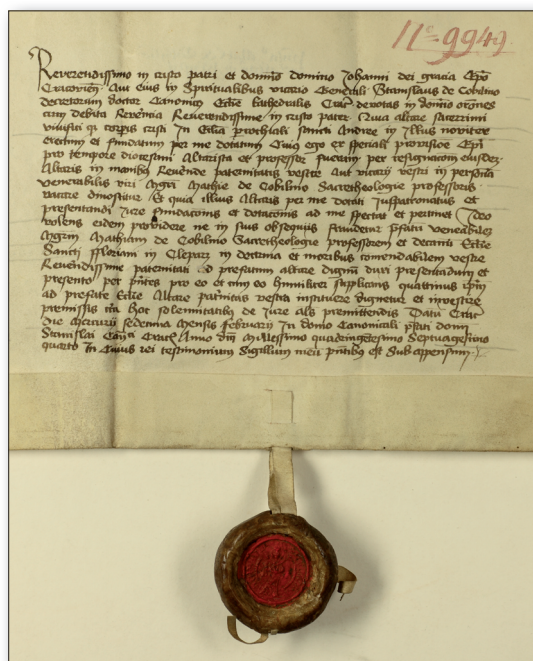 11c 9949.
Reverendissimo in cristo patri et domino domino Johanni dei gracia Epo
Cracovien Aut eius in Spiritualibus vicario Generali Stanislaus de Cobilino
decretorum doctor Canonicus Ecclie kathedralis Crac devotas in domino orones
cum debita Reverencia Reverendissime in cristo pater Quia altare sacratissimi
vivifici corporis cristi In Ecclia prochiali sancti Andree in Illus noviter
erectum et fundatum per me dotatum Cuius ego ex speciali provisione Epi
pro tempore diocesani Altarista et professor fueram per resignacionem eiusdem
Altaris in manibus Reverende paternitatis vestre Aut vicarii vestri in persona
venerabilis viri Mgri Mathie de Cobilino Sacretheologie professoris
vacare dinoscitur Et quia illius Altaris per me dotati Juspatronatus et
presentandi Jure fundacionis et dotacionis ad me spectat et pertinet Ideo
volens eidem providere ne in suis obsequiis fraudetur prefatum venerabilem
Mgrm Mathiam de Cobilino Sacretheologie professorem et decanum Ecclie
Sancti ffloriani in Cleparz in doctrina et moribus comendabilem vestre
Reverendissime paternitati ad prefatum altare dignum duxi presentandum et
presento per pntes pro eo et cum eo humiliter supplicans quatinus ipm
ad prefate Ecclie Altare paternitas vestra instituere dignetur et investire
premissis tn hoc solemnitatibus de Jure als premittendis Datum Crac
die mercurii sedecima mensis februarii In domo Canonicali pfati domini
Stanislai Canonici Crac Anno dni Millesimo quadringentesimo Septuagesimo
quarto In Cuius rei testimonium Sigillum meum pntibus est Subappensum